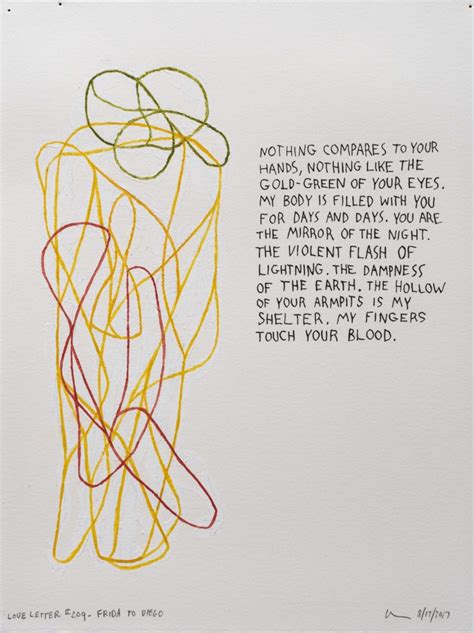 NOTHING COMPARES TO YOUR
HANDS, NOTHING LIKE THE
GOLD-GREEN OF YOUR EYES.
MY BODY IS FILLED WITH YOU
FOR DAYS AND DAYS. YOU ARE
THE MIRROR OF THE NIGHT.
THE VIOLENT FLASH OF
LIGHTNING. THE DAMPNESS
OF THE EARTH. THE HOLLOW
OF YOUR ARMPITS IS MY
SHELTER. MY FINGERS
TOUCH YOUR BLOOD.
LOVE LETTER #209- FRIDA TO DIEGO
8/17/2017